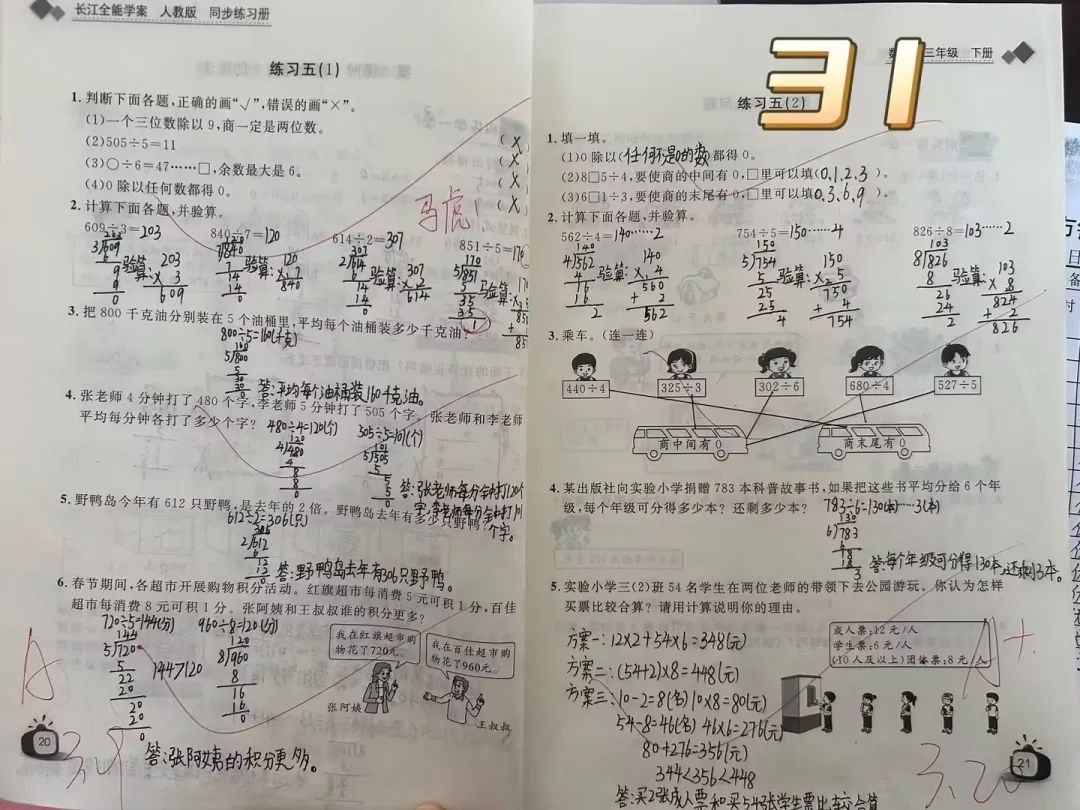 长江全能学案 人教版 同步练习册
练习五(1)
1. 判断下面各题,正确的画“√”,错误的画“×”。
(1)一个三位数除以9,商一定是两位数。 (X)
(2)505÷5=11 (X)
(3)○÷6=47……□,余数最大是6。 (X)
(4)0除以任何数都得0。 (X)
马虎
2. 计算下面各题,并验算。
609÷3=203 840÷7=120 614÷2=307 851÷5=170
203 120 307 170
3 609 7 840 2 614 5 851
验算: 203 验算: 120 验算: 307 验算:
× 3 × 7 × 2
609 840 614
3. 把800千克油分别装在5个油桶里,平均每个油桶装多少千克油?
800÷5=160(千克)
160
5 800
5
30
30
0
答:平均每个油桶装160千克油。
4. 张老师4分钟打了480个字,李老师5分钟打了505个字。张老师和李老师
平均每分钟各打了多少个字? 480÷4=120(个) 505÷5=101(个)
120 101
4 480 5 505
4 5
8 5
8 5
0 0
答:张老师每分钟打120个
字,李老师每分钟打
个字。
5. 野鸭岛今年有612只野鸭,是去年的2倍。野鸭岛去年有多少只野鸭?
612÷2=306(只)
306
2 612
6
12
12
0
答:野鸭岛去年有306只野鸭。
6. 春节期间,各超市开展购物积分活动。红旗超市每消费5元可积1分,百佳
超市每消费8元可积1分。张阿姨和王叔叔谁的积分更多?
720÷5=144(分) 960÷8=120(分)
144 120
5 720 8 960
5 8
22 16
20 16
20 0
20
0
144>120
我在红旗超市购
物花了720元。
我在百佳超市购
物花了960元。
张阿姨
王叔叔
答:张阿姨的积分更多。
A
20
31
三年级 下册
练习五(2)
1. 填一填。
(1)0除以(任何不是0的数)都得0。
(2)8□5÷4,要使商的中间有0,□里可以填(0,1,2,3)。
(3)6□1÷3,要使商的末尾有0,□里可以填(0,3,6,9)。
2. 计算下面各题,并验算。
562÷4=140……2 754÷5=150……4 826÷8=103……2
140 150 103
4 562 5 754 8 826
4 5 8
16 25 26
16 25 24
2 4 2
验算: 140 验算: 150 验算: 103
× 4 × 5 × 8
560 750 824
+ 2 + 4 + 2
562 754 826
3. 乘车。(连一连)
440÷4 325÷3 302÷6 680÷4 527÷5
商中间有0 商末尾有0
4. 某出版社向实验小学捐赠783本科普故事书,如果把这些书平均分给6个年
级,每个年级可分得多少本? 还剩多少本? 783÷6=130(本)……3(本)
130
6 783
6
18
18
3
答:每个年级可分得130本,还剩3本。
5. 实验小学三(2)班54名学生在两位老师的带领下去公园游玩。你认为怎样
买票比较合算? 请用计算说明你的理由。
方案一:12×2+54×6=348(元)
方案二:(54+2)×8=448(元)
方案三:10-2=8(名) 10×8=80(元)
54-8=46(名) 46×6=276(元)
80+276=356(元)
344<356<448
答:买2张成人票和买54张学生票比较合算
成人票:12元/人
学生票:6元/人
(10人及以上)团体票:8元/人
A+
21